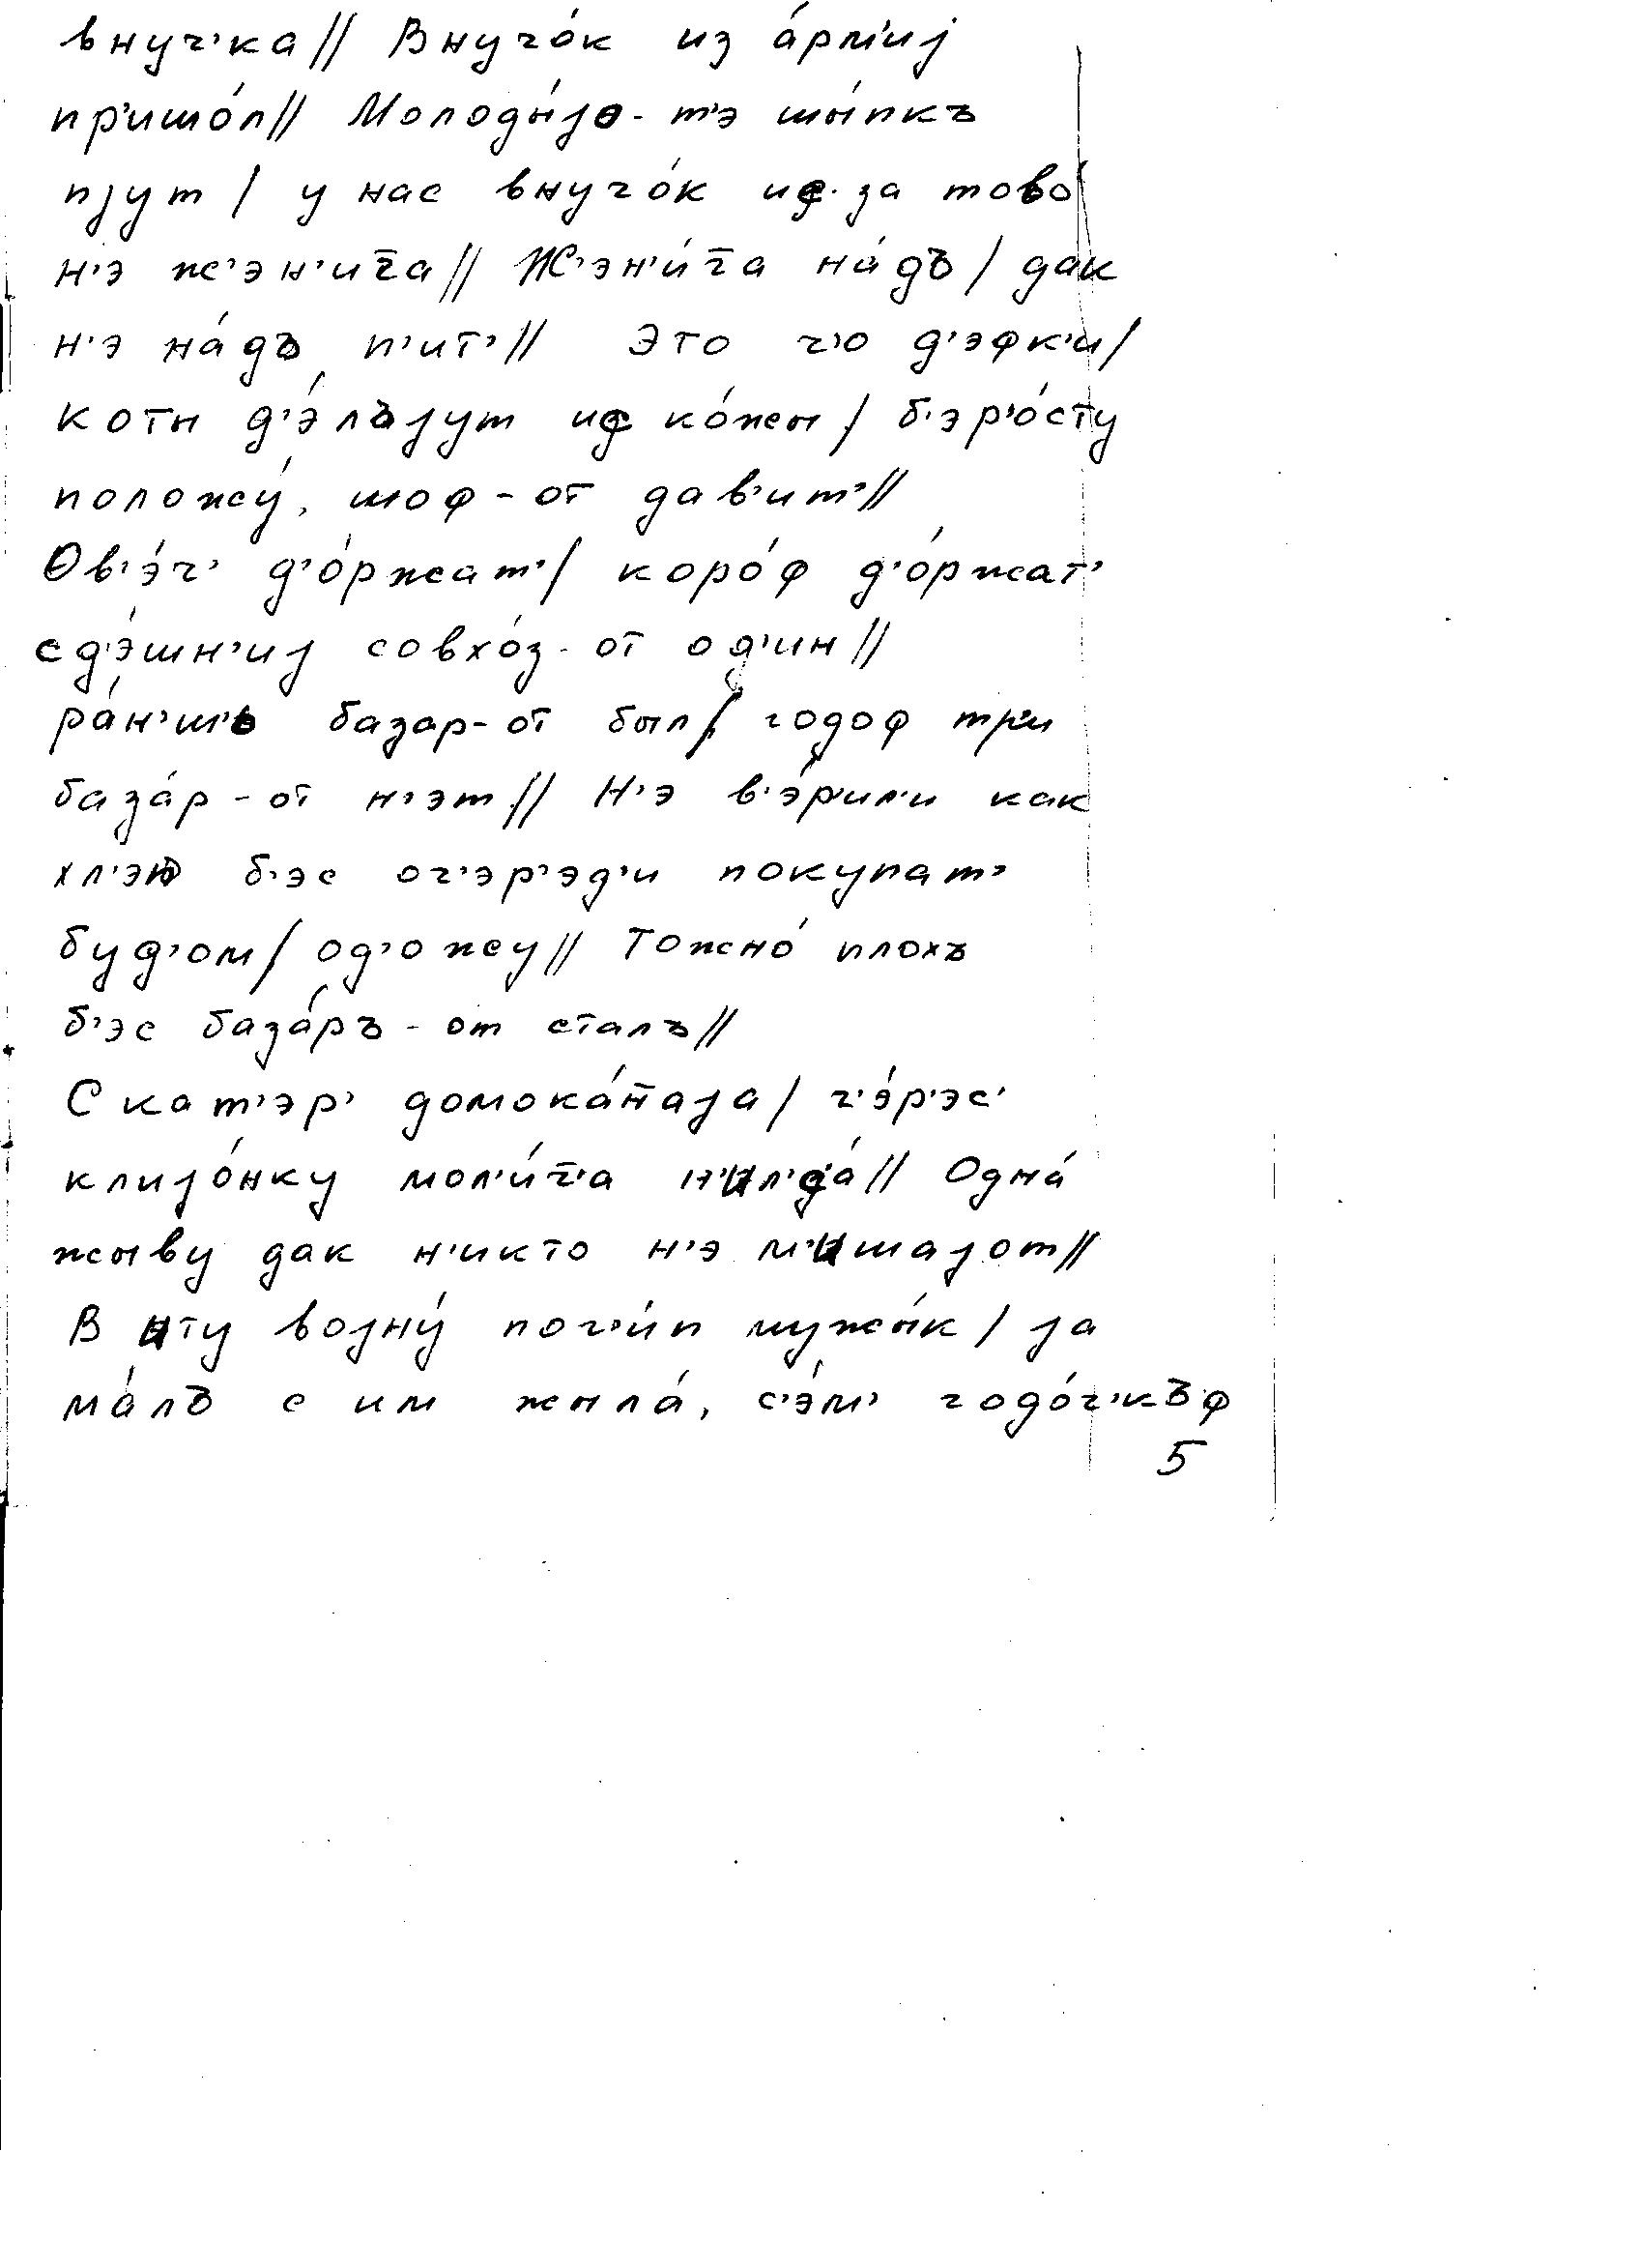 внуч'ка // Внучо́к из а́рм'иј
пр'ишо́л // Молоды́јо-т'э шы́пкъ
пјут / у нас внучо́к ис-за тово́
н'э ж'эн'ич̄а // Ж'эн'и́ч̄а на́дъ / дак
н'э на́дъ п'ит' // Это ч'о д'эфк'и /
коты д'э́лъјут ис ко́жы / б'эр'о́сту
положу́, шоф-от дав'ит' //
Ов'э́ч' д'о́ржат' / коро́ф д'о́ржат'
сд'э́шн'иј совхо́з-от од'ин //
ра́н'ш'ь базар-от был / годоф тр'и
база́р-от н'эт // Н'э в'э́рил'и как
хл'эб б'эс оч'эр'эд'и покупат'
буд'ом / од'ожу // Тожно́ плохъ
б'эс база́ръ-от сталъ //
Скат'эр' домока́н̄аја / ч'э́р'эс'
клијо́нку мол'и́ч̄'а н'ил'з'а́ // Одна́
жыву дак н'икто н'э м'ишајот //
В иту војну́ пог'и́п мужы́к / ја
ма́лъ с им жыла́, с'э́м' годо́ч'къф
5